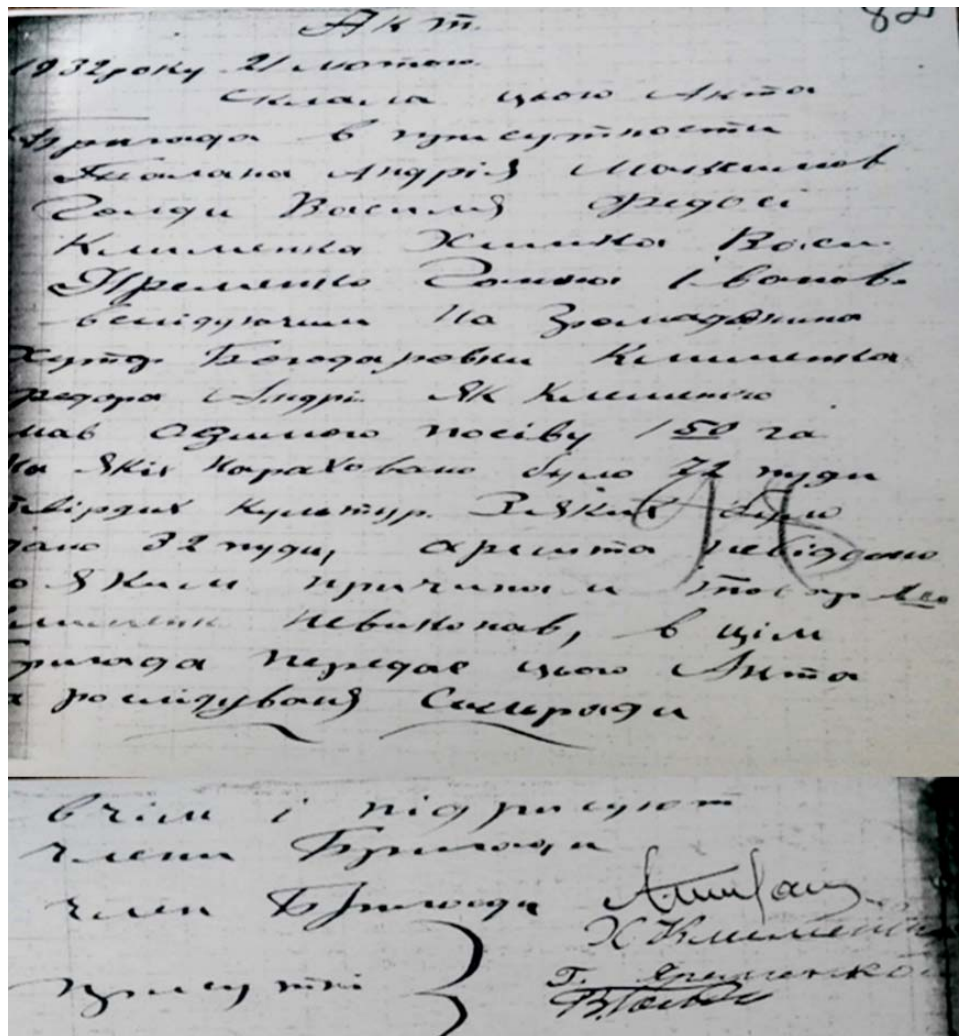 Акт
82
1932 року 21 лютого
Склала цього Акта
Бригада в присутности
Андрія Максимов
Голди Василя Федосі
Клименка Хишка Васи.
Яременко Ганни Іванов.
На Громадянина
Хутор. Богодаровки Клименка
Федора Андрі. як Клименко
мав озимого посіву 150 га
на якіх нараховано було 72 пуди
твірдих культур. З яких було
здано 32 пуди, арешта невідомо
по яким причинам товар
Клименк невиконав, в цім
Бригада передає цього Акта
на розлідуваня Сільради
вчім і підписуют
члени Бригади
Член Бригади
Х Клименк
присутні
Г. Яременко
В. Голда